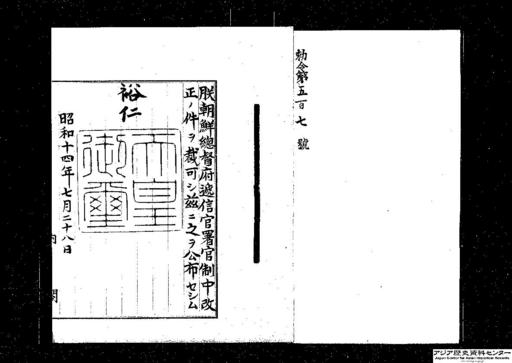 勅令第五百七號
朕朝鮮總督府遞信官署官制中改
正ノ件ヲ裁可シ玆ニ之ヲ公布セシム
裕仁
天皇御璽
昭和十四年七月二十八日
アジア歴史資料センター
Japan Center for Asian Historical Records